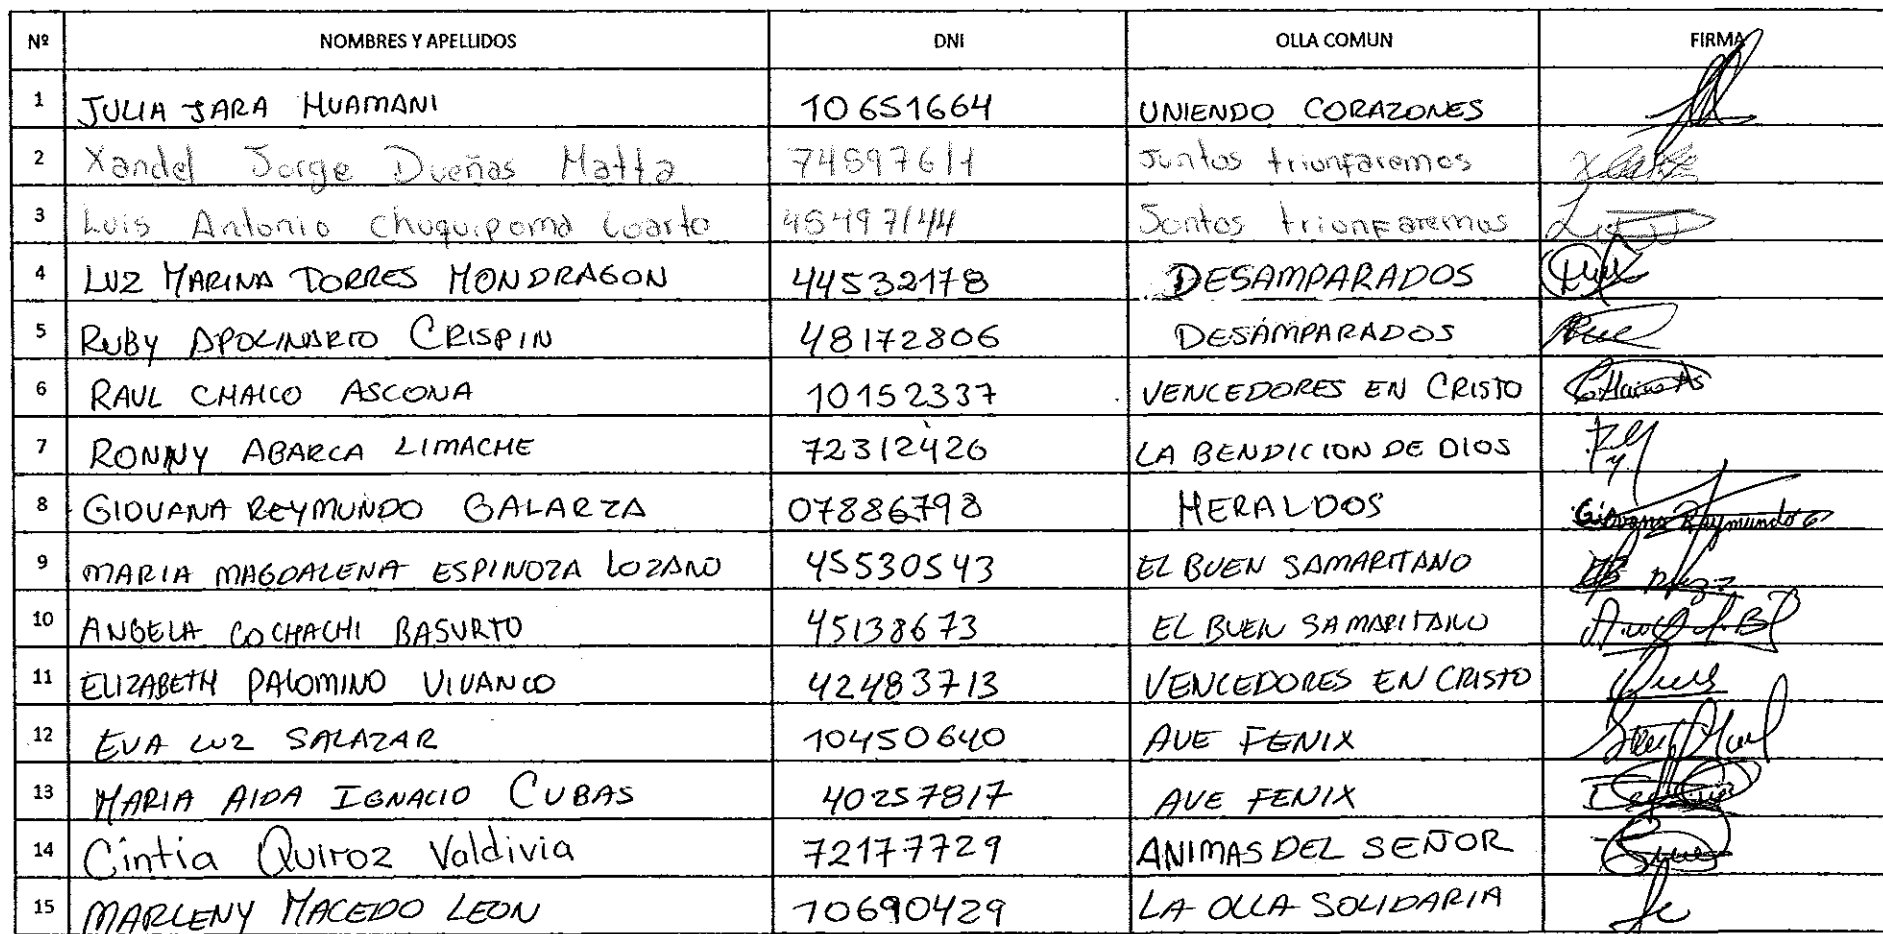 Nº NOMBRES Y APELLIDOS DNI OLLA COMUN FIRMA
1 JULIA JARA HUAMANI 10651664 UNIENDO CORAZONES
2 Xandel Jorge Dueñas Matta 74597611 Juntos trionfaremos
3 Luis Antonio Chuquipoma Coarto 45497144 Jontos trionfaremos
4 LUZ MARINA TORRES MONDRAGON 44532178 DESAMPARADOS
5 RUBY APOLINARIO CRISPIN 48172806 DESAMPARADOS
6 RAUL CHAICO ASCONA 10152337 VENCEDORES EN CRISTO
7 RONNY ABARCA LIMACHE 72312426 LA BENDICION DE DIOS
8 GIOVANA REYMUNDO GALARZA 07886798 HERALDOS Giovana Raymundo G
9 MARIA MAGDALENA ESPINOZA LOZANO 45530543 EL BUEN SAMARITANO
10 ANGELA COCHACHI BASURTO 45138673 EL BUEN SAMARITANO
11 ELIZABETH PALOMINO VIVANCO 42483713 VENCEDORES EN CRISTO
12 EVA LUZ SALAZAR 10450640 AVE FENIX
13 MARIA AIDA IGNACIO CUBAS 40257817 AVE FENIX
14 Cintia Quiroz Valdivia 72177729 ANIMAS DEL SEÑOR
15 MARLENY MACEDO LEON 10690429 LA OLLA SOLIDARIA